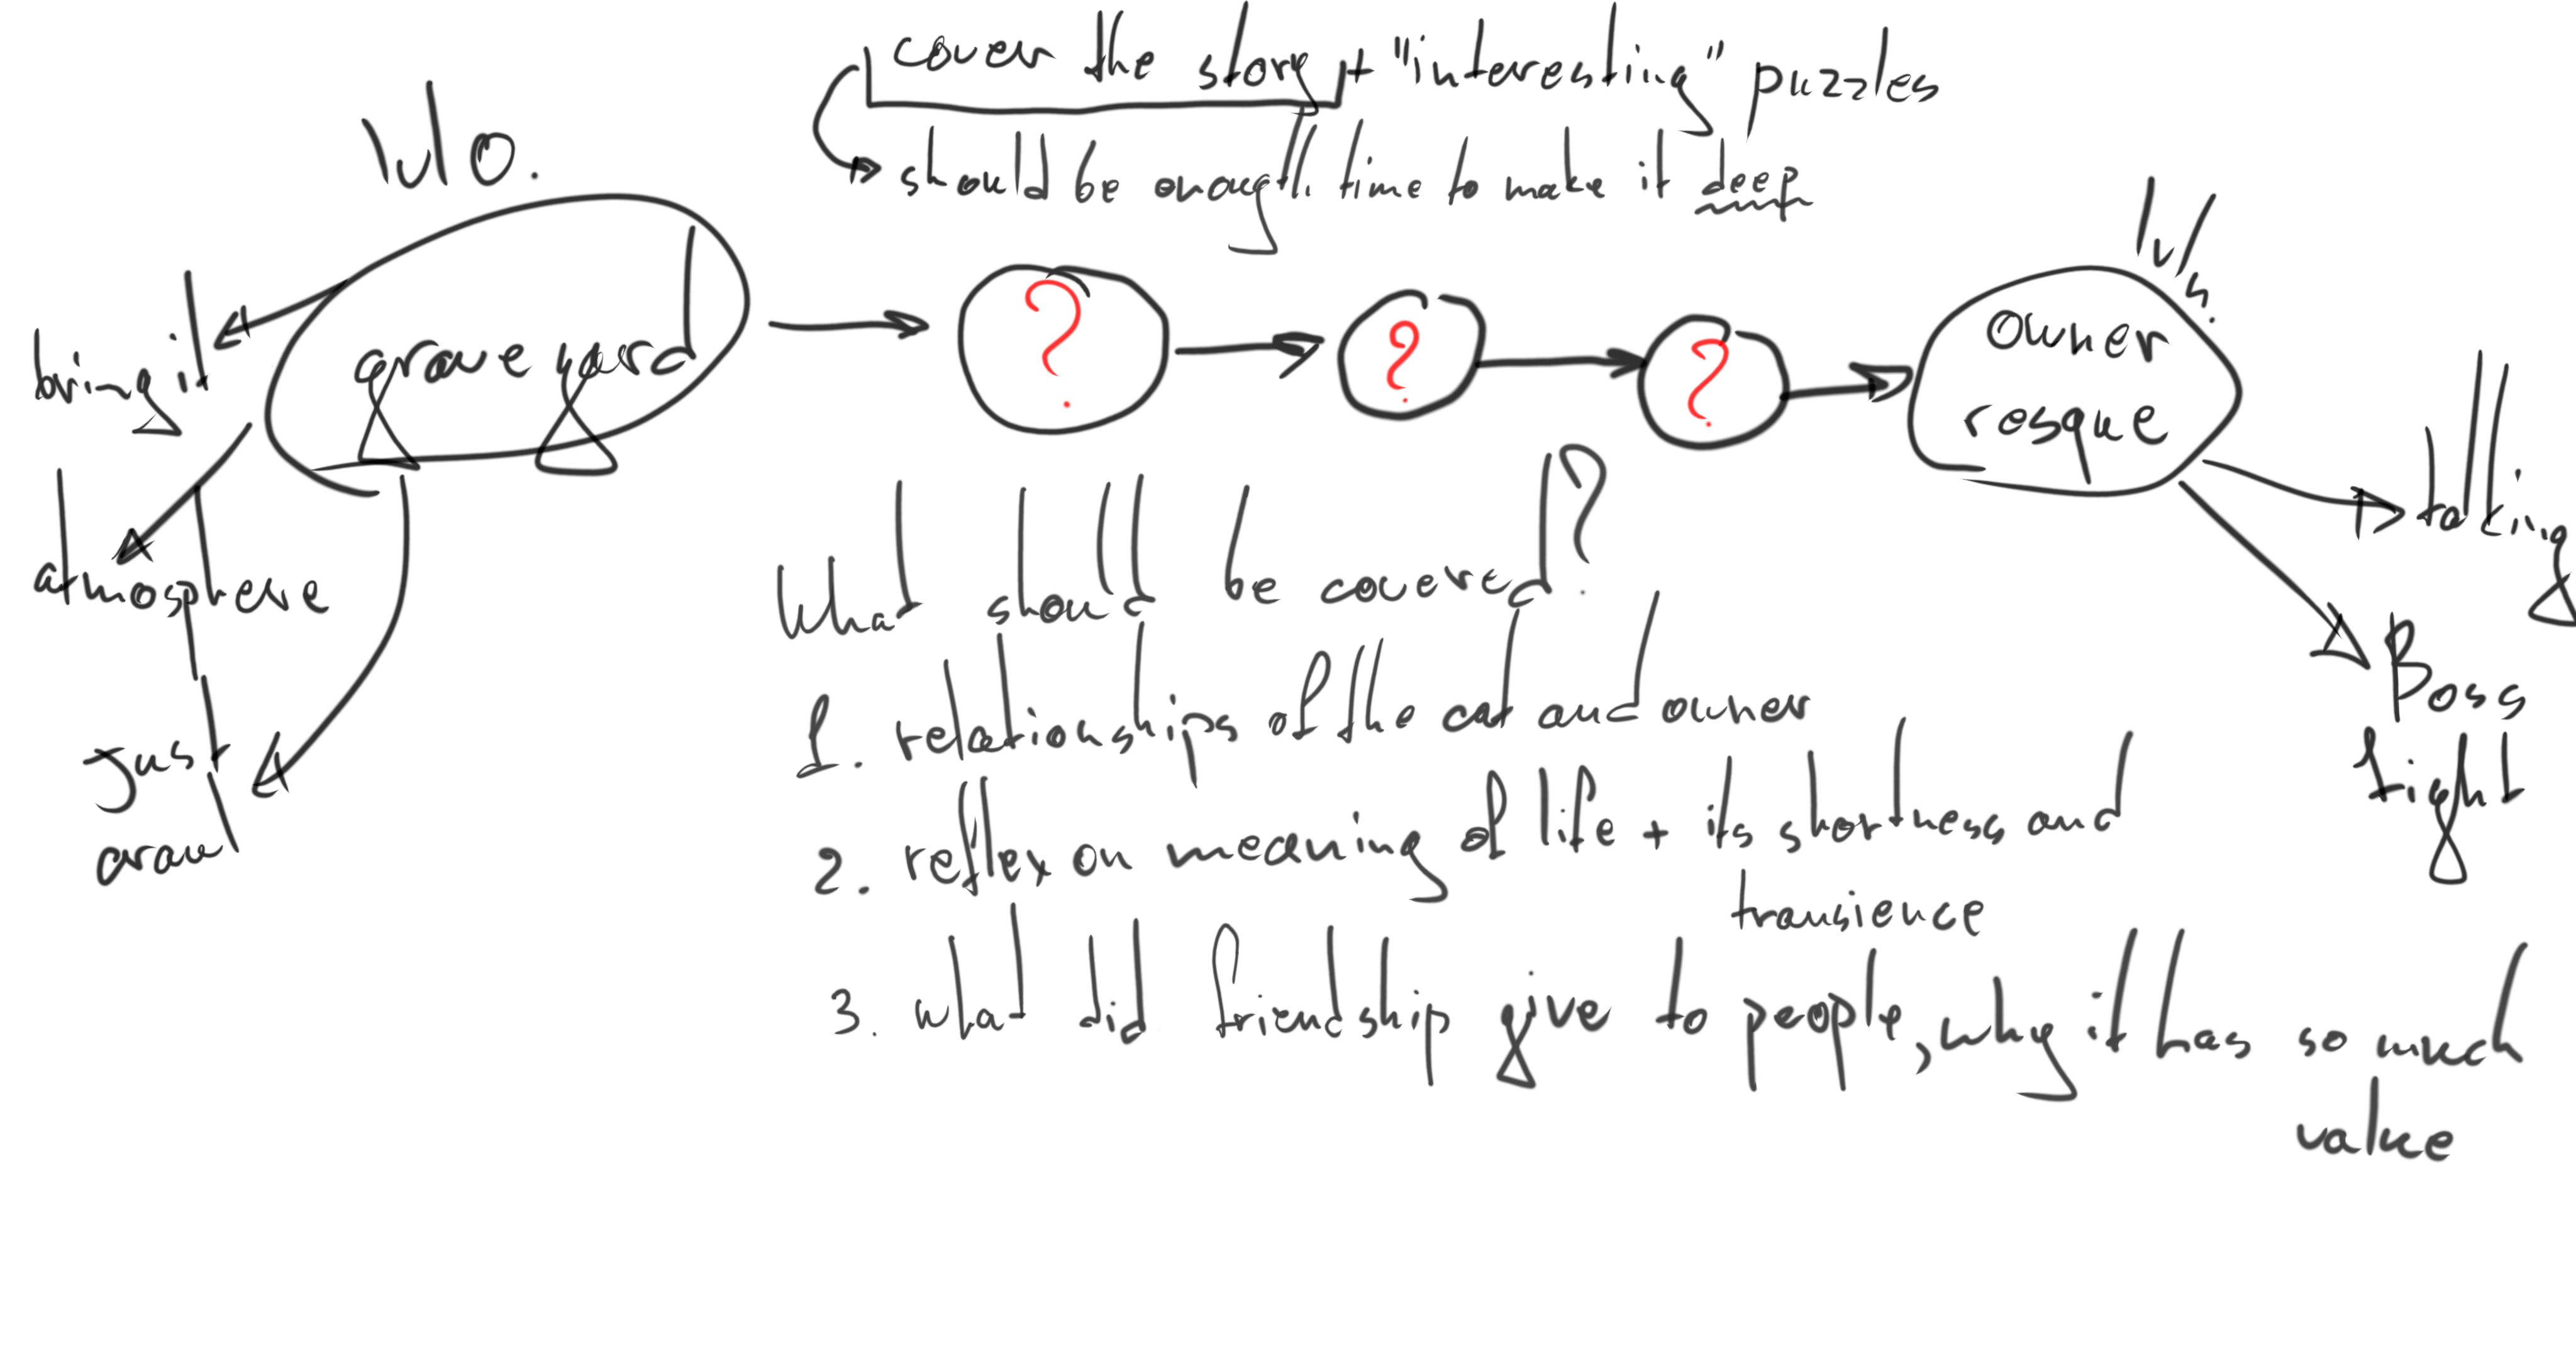 cover the story + "interesting" puzzles
should be enough time to make it deep
lvl 0.
grave yard
bring it
atmosphere
Just
?
?
?
lvl 4.
owner
resque
talking
Boss
fight
What should be covered?
1. relationships of the cat and owner
2. reflex on meaning of life + its shortness and
transience
3. what did friendship give to people, why it has so much
value